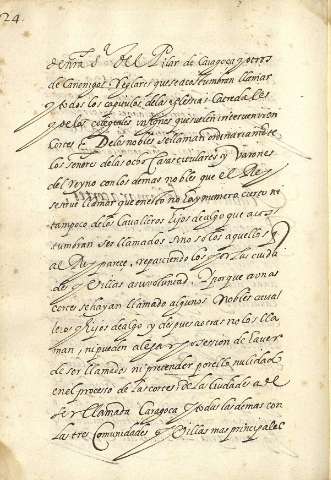 24.
de nrā. s.ʳᵃ del Pilar de Caragoça y otros
de Canonigos Reglares que se acostumbran llamar
y todos los capitulos de las iglesias Catredales
y de las colegiales insignes que suelen intervenir en
cortes. De los nobles se llaman ordinariamente
los señores de las ocho casas y Varones
del reyno con los demas nobles que el Rey
es servido llamar que en esto no hay numero cierto ni
tampoco de los Cavalleros hijos dealgo que acos
tumbran ser llamados sino solos aquellos q̄
al Rey parece, repartiendo los por las ciuda
des y Villas a su voluntad. Porque aunq̄ a unas
cortes se hayan llamado algunos Nobles caval
leros y hijos dealgo y despues a otras no los lla
man, ni pueden alegar possesion de haver
de ser llamados ni pretender por ello nulidad
en el processo de las cortes. de las ciudades a de
ser llamada Caragoça y todas las demas con
las tres Comunidades y Villas mas principales